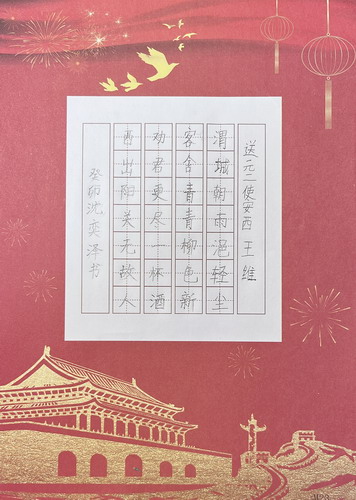 送元二使安西 王维
渭城朝雨浥轻尘
客舍青青柳色新
劝君更尽一杯酒
西出阳关无故人
癸卯沈奕泽书